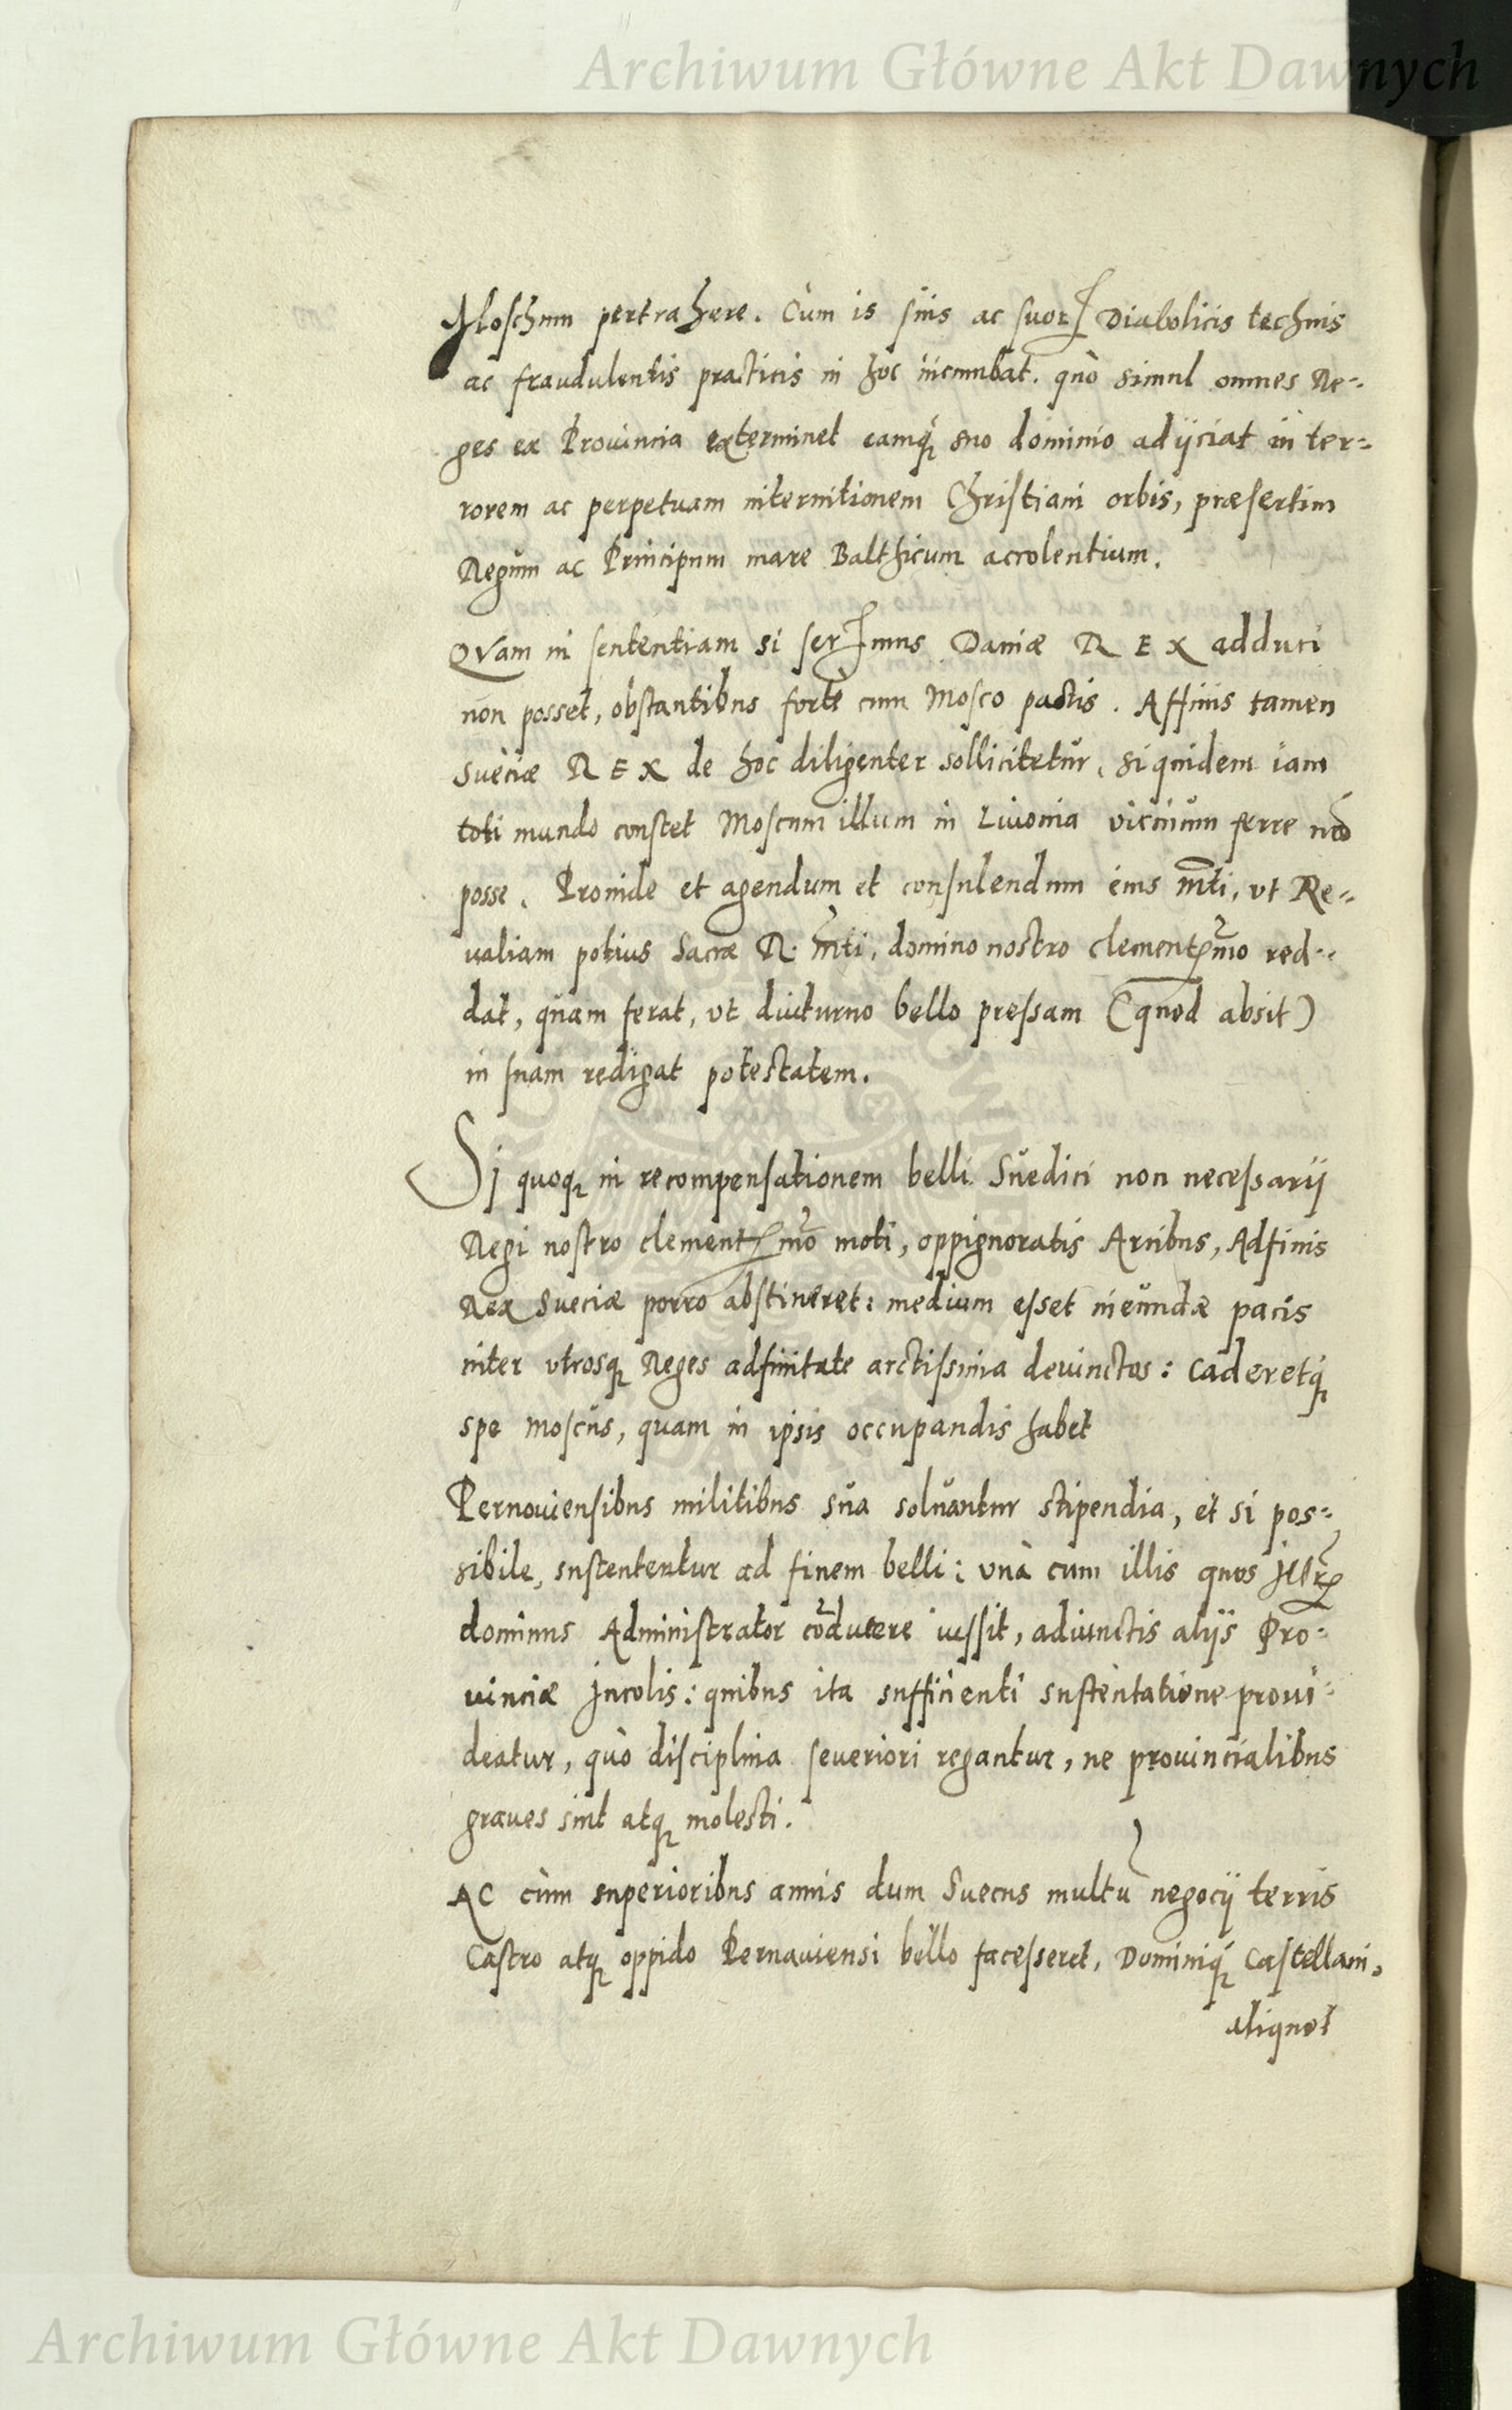 Archiwum Główne Akt Dawnych
Moschum pertrahere. Cùm is suis ac suoꝝ Diabolicis technis
ac fraudulentis practicis in hoc incumbat. quò simul omnes Re=
ges ex Prouincia exterminet eamq́ꝫ suo dominio adijciat in ter=
rorem ac perpetuam internitionem Christiani orbis, præsertim
Regum ac Principum mare Balthicum accolentium.
QVam in sententiam si serᵐᵘˢ Daniæ REX adduci
non posset, obstantibus fortè cum Mosco pactis. Affinis tamen
Sueciæ REX de hoc diligenter sollicitetur, siquidem iam
toti mundo constet Moscum illum in Liuonia vicinum ferre nõ
posse. Proinde et agendum et consulendum eius mͭti, vt Re=
ualiam potius Sacræ R. mͭti, domino nostro clementᵐᵒ red=
dat, quàm ferat, vt diuturno bello pressam (quod absit)
in suam redigat potestatem.
Sj quoqꝫ in recompensationem belli Suedici non necessarij
Regi nostro clementᵐᵒ moti, oppignoratis Arcibus, Adfinis
Rex Sueciæ porro abstineret: medium esset ineundæ pacis
inter vtrosqꝫ Reges adfinitate arctissima deuinctos: Caderetq́ꝫ
spe Moscus, quam in ipsis occupandis habet
Pernouiensibus militibus sua soluantur stipendia, et si pos=
sibile, sustententur ad finem belli: vnà cum illis quos Jllʳᵉ
dominus Administrator cõducere iussit, adiunctis alijs Pro=
uinciæ Jncolis: quibus ita sufficienti sustentatione proui=
deatur, quò disciplina seueriori regantur, ne prouincialibus
graues sint atqꝫ molesti.
AC cùm superioribus annis dum Suecus multũ negocij terris
Castro atqꝫ oppido Pernauiensi bello facesseret, Dominiq́ꝫ Castellani,
aliquot
Archiwum Główne Akt Dawnych